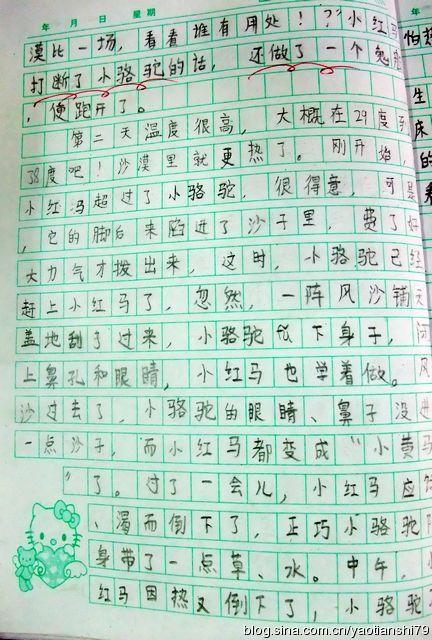 年 月 日 星期
漠比一场，看看谁有用处！？"小红马
打断了小骆驼的话，还做了一个鬼脸
，便跑开了。
第二天温度很高，大概在29度到
38度吧！沙漠里就更热了。刚开始，
小红马超过了小骆驼，很得意，可是
，它的脚后来陷进了沙子里，费了好
大力气才拨出来，这时，小骆驼已经
赶上小红马了，忽然，一阵风沙铺天
盖地刮了过来，小骆驼低下身子，闭
上鼻孔和眼睛，小红马也学着做。风
沙过去了，小骆驼的眼睛、鼻子没进
一点沙子，而小红马都变成"小黄马
"了。过了一会儿，小红马应
、渴而倒下了，正巧小骆驼
身带了一点草、水。中午，小
红马因热又倒下了，小骆驼
怕
生
床
的
blog.sina.com.cn/yaotianshi79